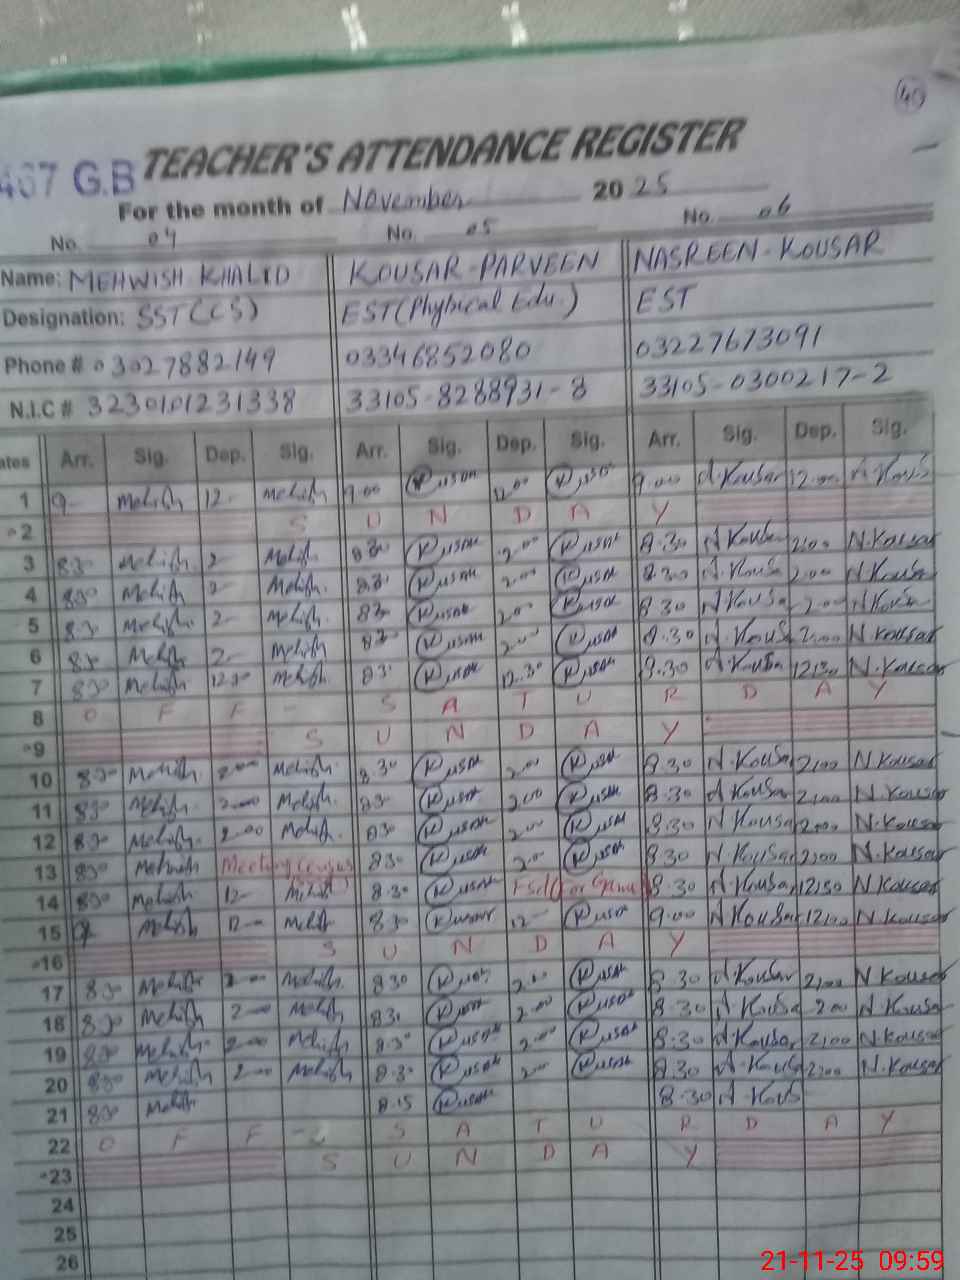 40
467 G.B TEACHER'S ATTENDANCE REGISTER
For the month of November 2025
No. 04 No. 05 No. 06
Name: MEHWISH KHALID KOUSAR-PARVEEN NASREEN-KOUSAR
Designation: SST(CS) EST(Phyhical Edu.) EST
Phone # 03027882149 03346852080 03227673091
N.I.C # 3230101231338 33105-8288931-8 33105-0300217-2
ates Arr. Sig. Dep. Sig. Arr. Sig. Dep. Sig. Arr. Sig. Dep. Sig.
1 9- Mehish 12- Mehish 9.00 Kousar 12.00 Kousar 9.00 N.Kousar 12.00 N.Kousar
2 S U N D A Y
3 8.30 Mehish 2- Mehish 8.30 Kousar 2.00 Kousar 8.30 N Kousar 2:00 N.Kousar
4 830 Mehish 2- Mehish 8.30 Kousar 2.00 Kousar 8.30 N.Kousar 2.00 N Kousar
5 8.30 Mehish 2- Mehish 830 Kousar 2.00 Kousar 8.30 N Kousar 2.00 N Kousar
6 8.30 Mehish 2- Mehish 8.30 Kousar 2.00 Kousar 8.30 N.Kousar 2:00 N Kousar
7 830 Mehish 12.30 Mehish 8.30 Kousar 12.30 Kousar 8.30 N.Kousar 12:30 N.Kousar
8 O F F - S A T U R D A Y
9 S U N D A Y
10 830 Mehish 2.00 Mehish 8.30 Kousar 2.00 Kousar 8.30 N Kousar 2:00 N Kousar
11 830 Mehish 2.00 Mehish 8.30 Kousar 2.00 Kousar 8.30 N Kousar 2:00 N Kousar
12 830 Mehish 2.00 Mehish 830 Kousar 2.00 Kousar 8.30 N Kousar 2:00 N.Kousar
13 830 Mehwish Meeting 830 Kousar 2.00 Kousar 8.30 N Kousar 2:00 N Kousar
14 830 Mehish 12- Mehish 8.30 Kousar Fsd for 8.30 N Kousar 12:30 N Kousar
15 9 Mehish 12- Mehish 8.30 Kousar 12- Kousar 9.00 N Kousar 12:00 N Kousar
16 S U N D A Y
17 830 Mehish 2.00 Mehish 830 Kousar 2.00 Kousar 8.30 N Kousar 2:00 N Kousar
18 830 Mehish 2.00 Mehish 8.30 Kousar 2.00 Kousar 8.30 N.Kousar 2.00 N Kousar
19 830 Mehish 2.00 Mehish 8.30 Kousar 2.00 Kousar 8.30 N Kousar 2:00 N Kousar
20 830 Mehish 2.00 Mehish 8.30 Kousar 2.00 Kousar 8.30 N.Kousar 2:00 N.Kousar
21 830 Mehish 8.15 Kousar 8.30 N.Kous
22 O F F - S A T U R D A Y
23 S U N D A Y
24
25
26
21-11-25 09:59